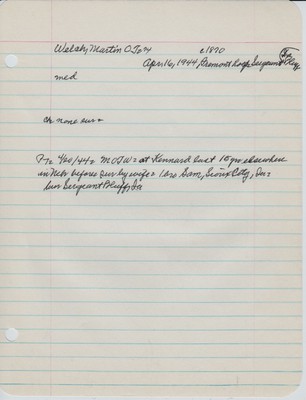 Welsh, Martin O. c1870
April 16, 1944, Fremont hosp, Sergeant Bluff
med
ch none sur
Ft 4/20/44 MOTW at Kennard last 10 yrs elsewhere
in Nebr before sur by wife 1 bro Sam, Sioux City, Ia
bur Sergeant Bluff, Ia